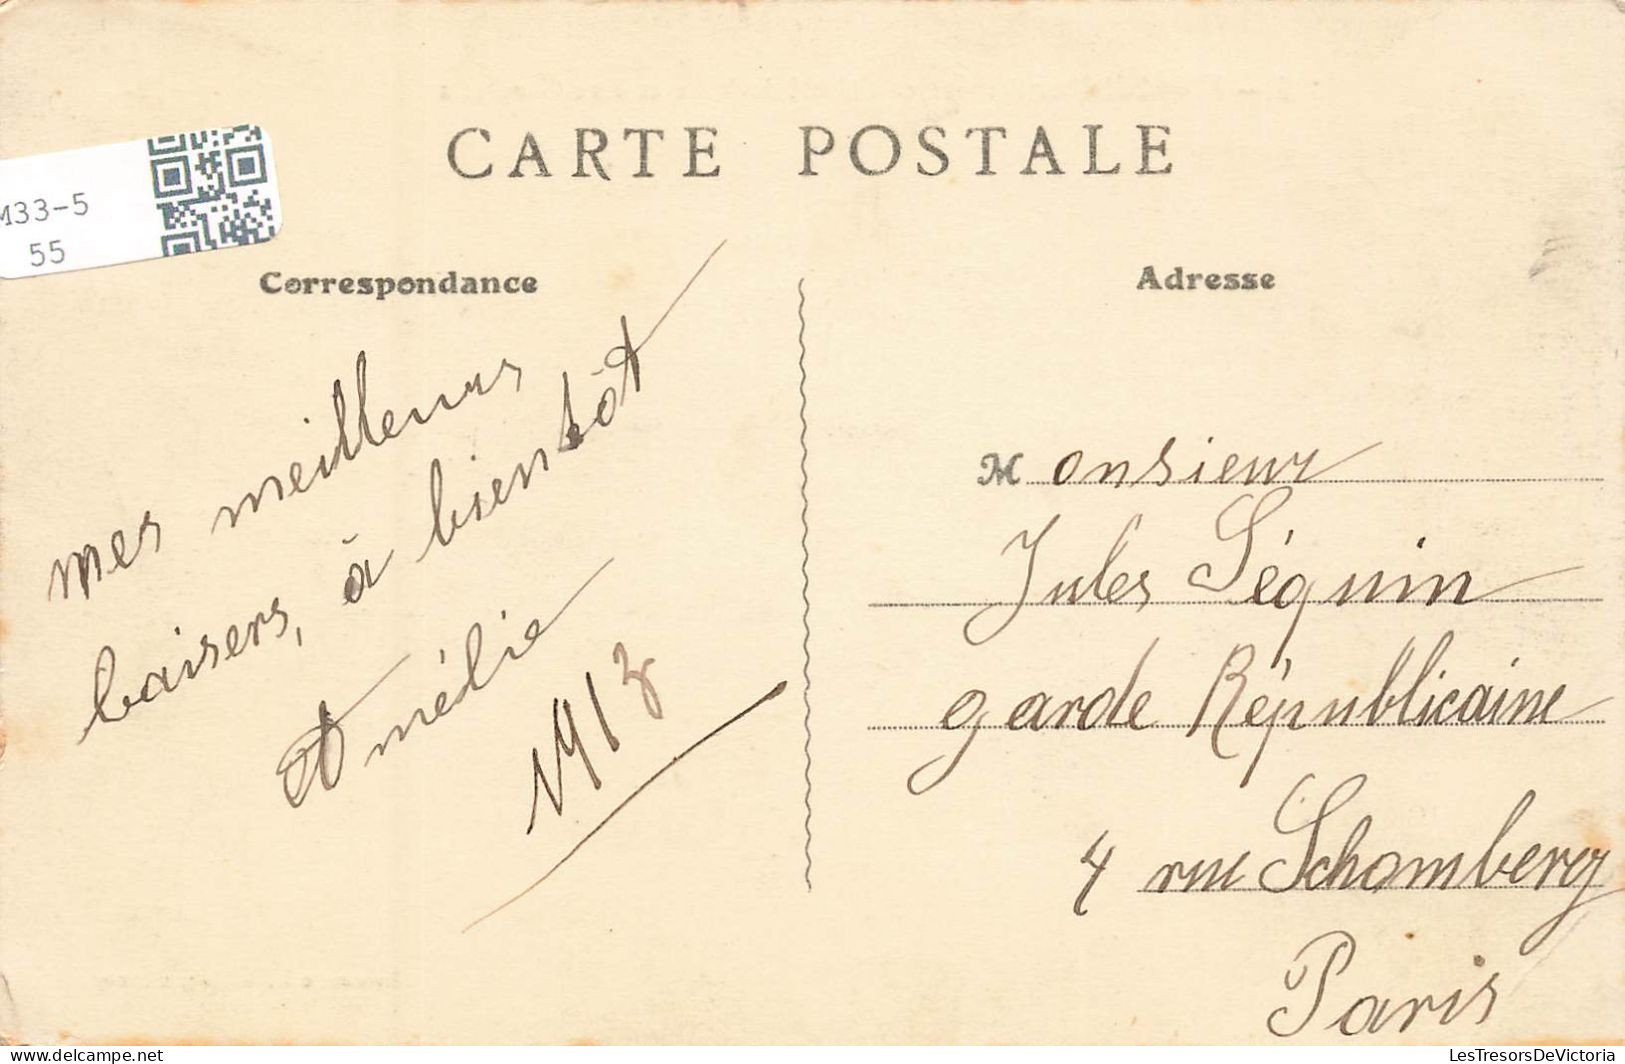 CARTE POSTALE
M33-5
55
Correspondance
Adresse
mes meilleurs
baisers, à bientôt
Amélie
1913
Monsieur
Jules Séguin
garde Républicaine
4 rue Schomberg
Paris
delcampe.net
LesTresorsDeVictoria